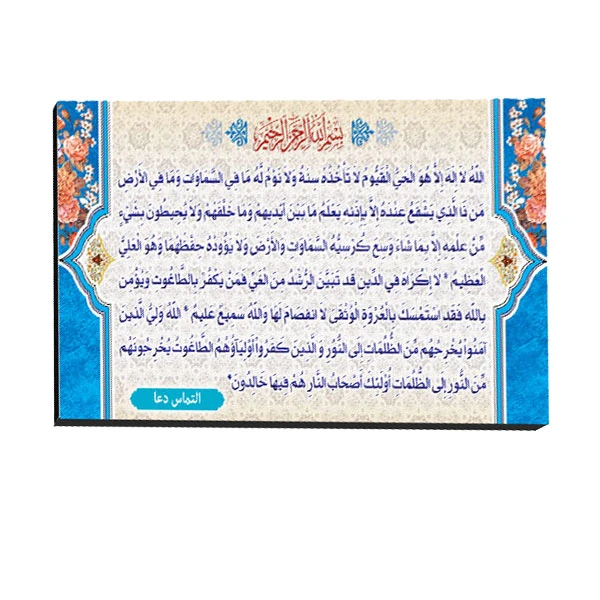 بسم الله الرحمن الرحیم
اللّهُ لاَ إِلَهَ إِلاَّ هُوَ الْحَيُّ الْقَيُّومُ لاَ تَأْخُذُهُ سِنَةٌ وَلاَ نَوْمٌ لَّهُ مَا فِي السَّمَاوَاتِ وَمَا فِي الأَرْضِ
مَن ذَا الَّذِي يَشْفَعُ عِنْدَهُ إِلاَّ بِإِذْنِهِ يَعْلَمُ مَا بَيْنَ أَيْدِيهِمْ وَمَا خَلْفَهُمْ وَلاَ يُحِيطُونَ بِشَيْءٍ
مِّنْ عِلْمِهِ إِلاَّ بِمَا شَاء وَسِعَ كُرْسِيُّهُ السَّمَاوَاتِ وَالأَرْضَ وَلاَ يَؤُودُهُ حِفْظُهُمَا وَهُوَ الْعَلِيُّ
الْعَظِيمُ * لاَ إِكْرَاهَ فِي الدِّينِ قَد تَّبَيَّنَ الرُّشْدُ مِنَ الْغَيِّ فَمَنْ يَكْفُرْ بِالطَّاغُوتِ وَيُؤْمِن
بِاللّهِ فَقَدِ اسْتَمْسَكَ بِالْعُرْوَةِ الْوُثْقَىَ لاَ انفِصَامَ لَهَا وَاللّهُ سَمِيعٌ عَلِيمٌ * اللّهُ وَلِيُّ الَّذِينَ
آمَنُواْ يُخْرِجُهُم مِّنَ الظُّلُمَاتِ إِلَى النُّوُرِ وَالَّذِينَ كَفَرُواْ أَوْلِيَآؤُهُمُ الطَّاغُوتُ يُخْرِجُونَهُم
مِّنَ النُّورِ إِلَى الظُّلُمَاتِ أُوْلَئِكَ أَصْحَابُ النَّارِ هُمْ فِيهَا خَالِدُونَ*
التماس دعا